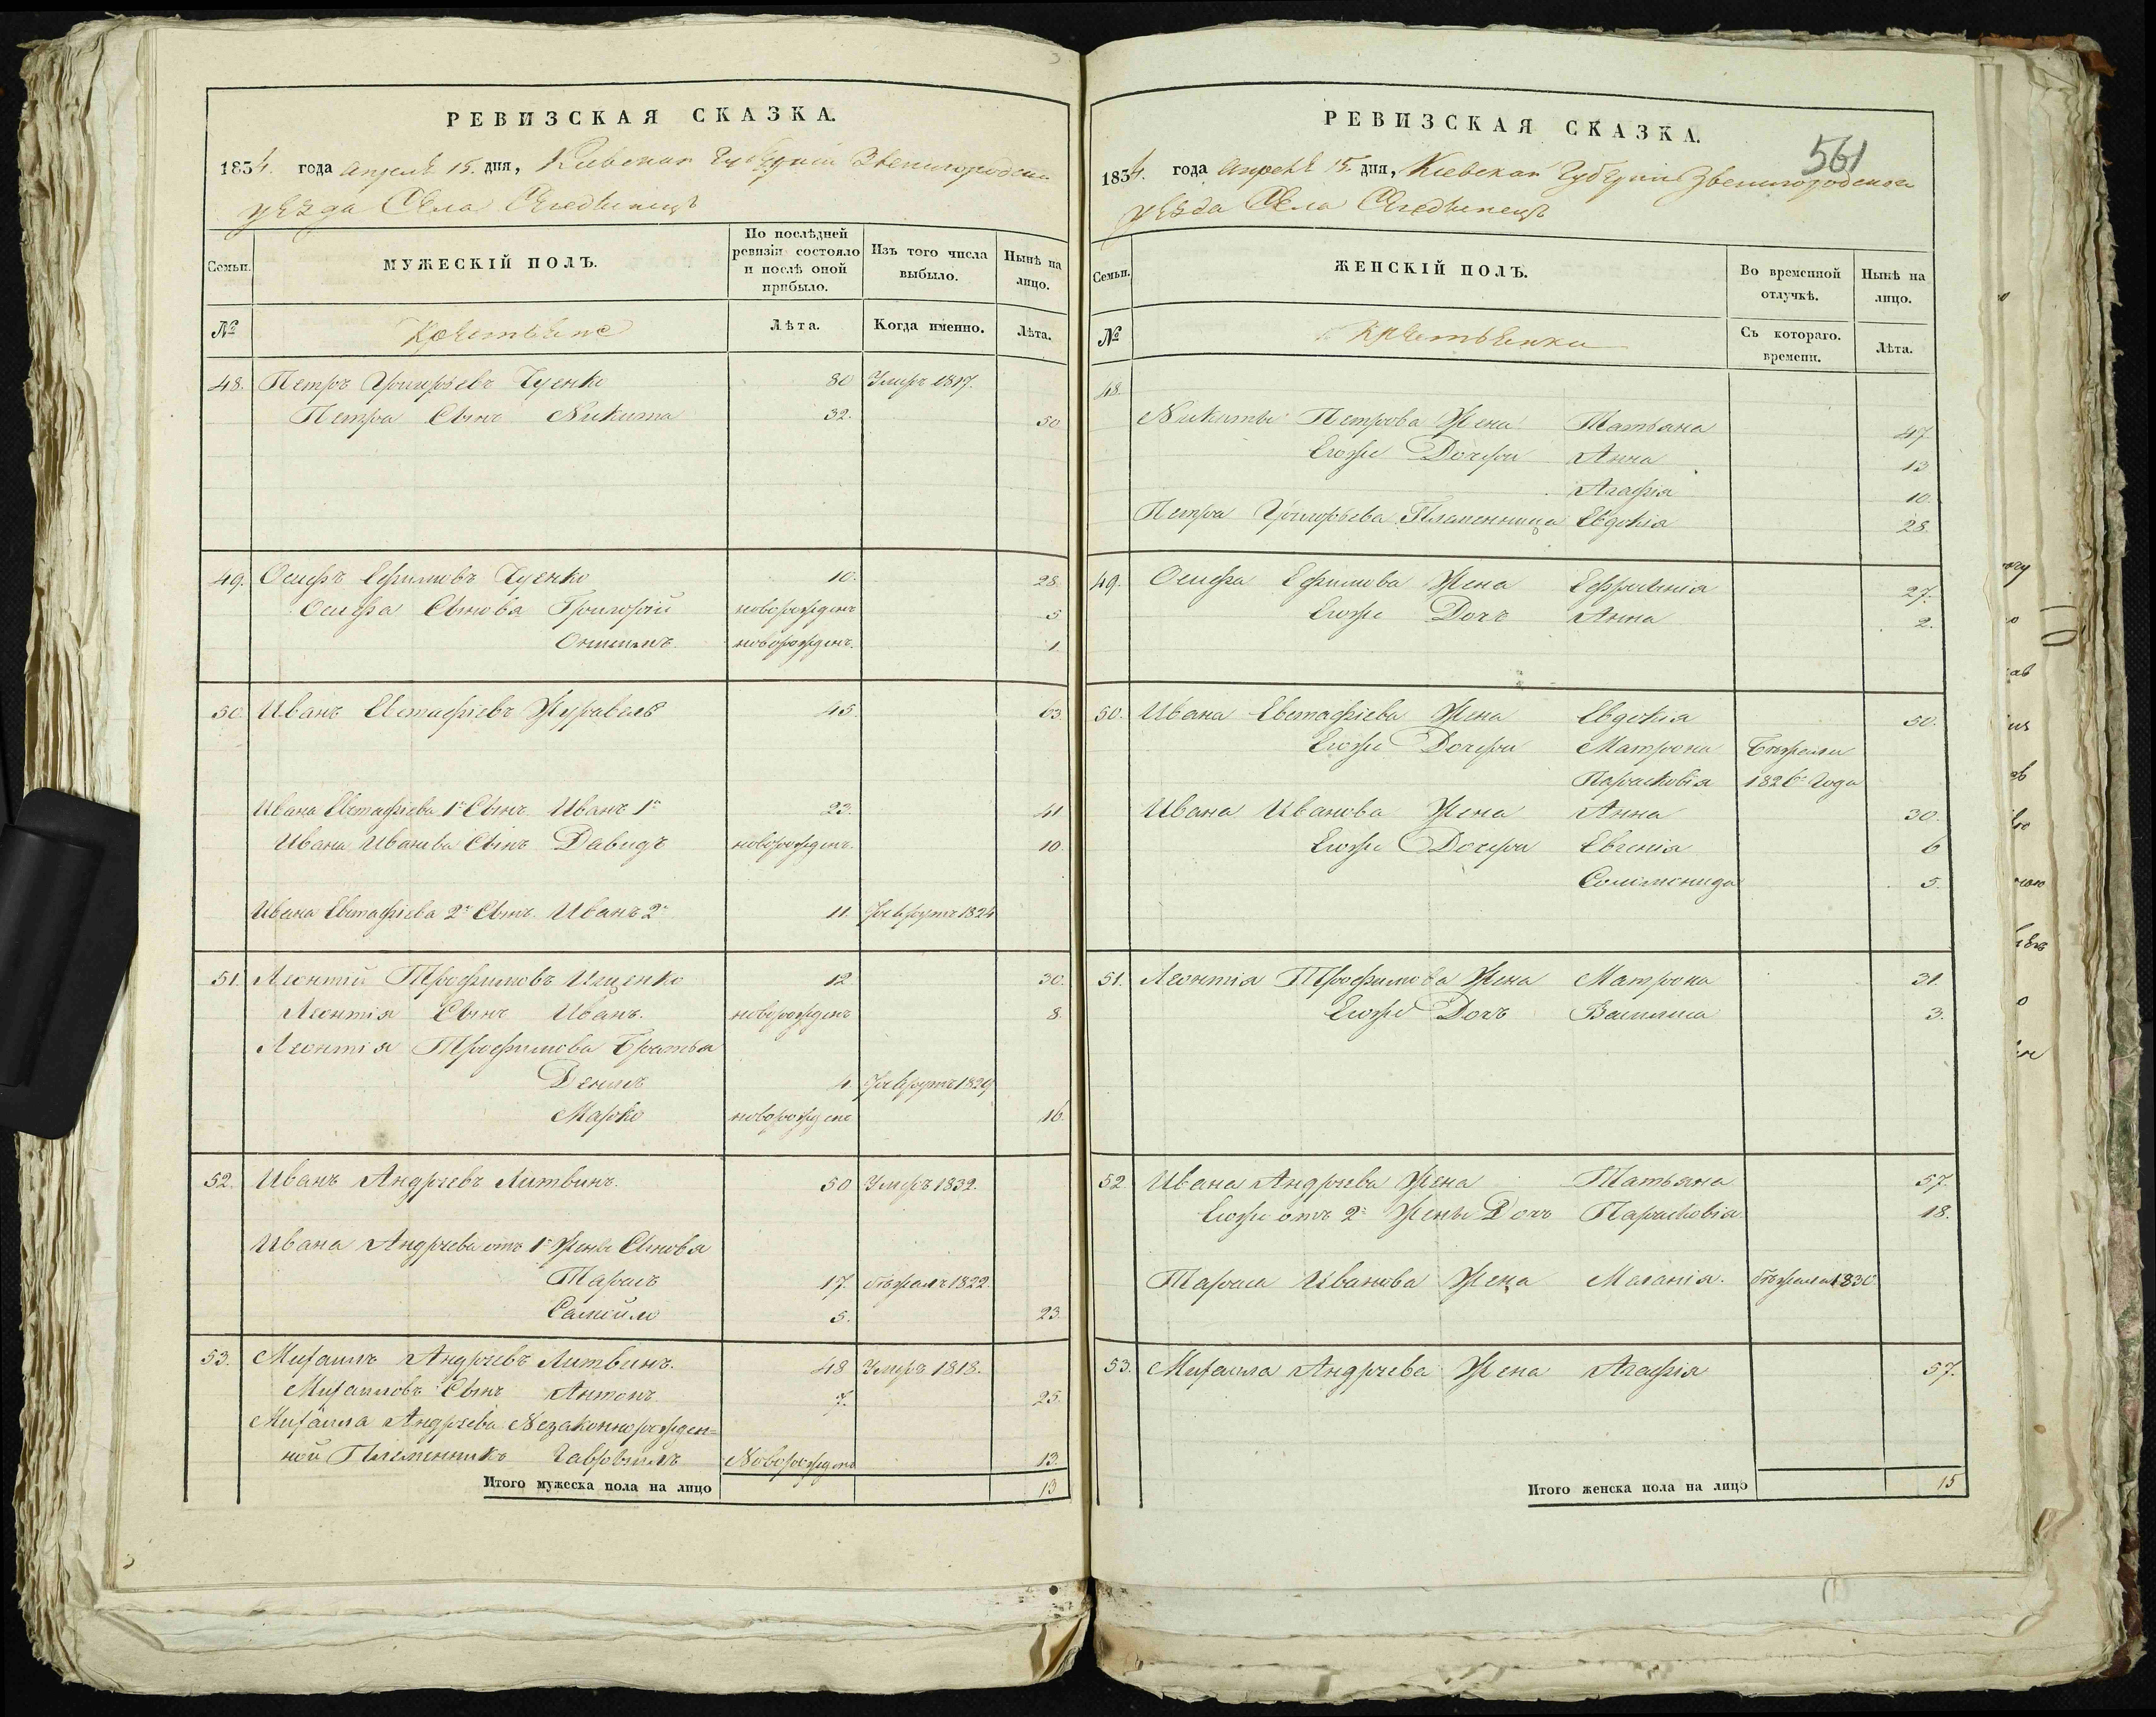 РЕВИЗСКАЯ СКАЗКА.
1834. года Апреля 15. дня, Киевской Губернии Звенигородско
уезда Села
Семьи.
МУЖЕСКІЙ ПОЛЪ.
По послѣдней ревизіи состояло и послѣ оной прибыло.
Изъ того числа выбыло.
Нынѣ на лицо.
№
Крестьяне
Лѣта.
Когда именно.
Лѣта.
48. Петръ Григорьевъ Гуенко 80 Умеръ 1817.
Петра Сынъ Никита 32. 50
49. Осифъ Ефимовъ Гуенко 10. 28.
Осифа Сыновья Григорій новорожденъ 5
новорожденъ. 1
50. Иванъ Евстафіевъ Журавель 45. 63.
Ивана Евстафіева 1й Сынъ Иванъ 1й 23. 41
Ивана Иванова Сынъ Давидъ новорожденъ. 10.
Ивана Евстафіева 2й Сынъ Иванъ 2й 11. Рекрутъ 1824
51. Леонтій Трофимовъ Ищенко 12 30.
Леонтія Сынъ Иванъ. новорожденъ 8.
Леонтія Трофимова Братья
Денисъ 4. Рекрутъ 1829
Марко новорожденъ 16.
52. Иванъ Андреевъ Литвинъ. 50 Умеръ 1832.
Ивана Андреева отъ 1й Жены Сыновья
Тарасъ 17. бѣжалъ 1822.
Самойло 5. 23.
53. Михаилъ Андреевъ Литвинъ. 48 Умеръ 1818.
Михаиловъ Сынъ Антонъ 7. 25.
Михаила Андреева Незаконнорожден=
ной Племянникъ Гавріилъ Новорожденъ 13.
Итого мужеска пола на лицо 13
РЕВИЗСКАЯ СКАЗКА.
561
1834. года Апреля 15. дня, Киевской Губернии Звенигородского
уезда Села
Семьи.
ЖЕНСКІЙ ПОЛЪ.
Во временной отлучкѣ.
Нынѣ на лицо.
№
Крестьянки
Съ котораго. времени.
Лѣта.
48.
Никиты Петрова Жена Татьяна 47
Егоже Дочери Анна 13
Агафія 10.
Петра Григорьева Племенница Евдокія 28.
49. Осифа Ефимова Жена Ефросинія 27.
Егоже Дочъ Анна 2.
50. Ивана Евстафіева Жена Евдокія 50.
Егоже Дочери Матрона Бѣжали
Парасковія 1826го Года
Ивана Иванова Жена Анна 30.
Егоже Дочери Евгенія 6
5.
51. Леонтія Трофимова Жена Матрона 31.
Егоже Дочъ Василиса 3.
52 Ивана Андреева Жена Татьяна 57.
Егоже отъ 2й Жены Дочъ Парасковія 18.
Тараса Иванова Жена Маланія. бѣжала 1830.
53. Михаила Андреева Жена Агафія 57.
Итого женска пола на лицо 15